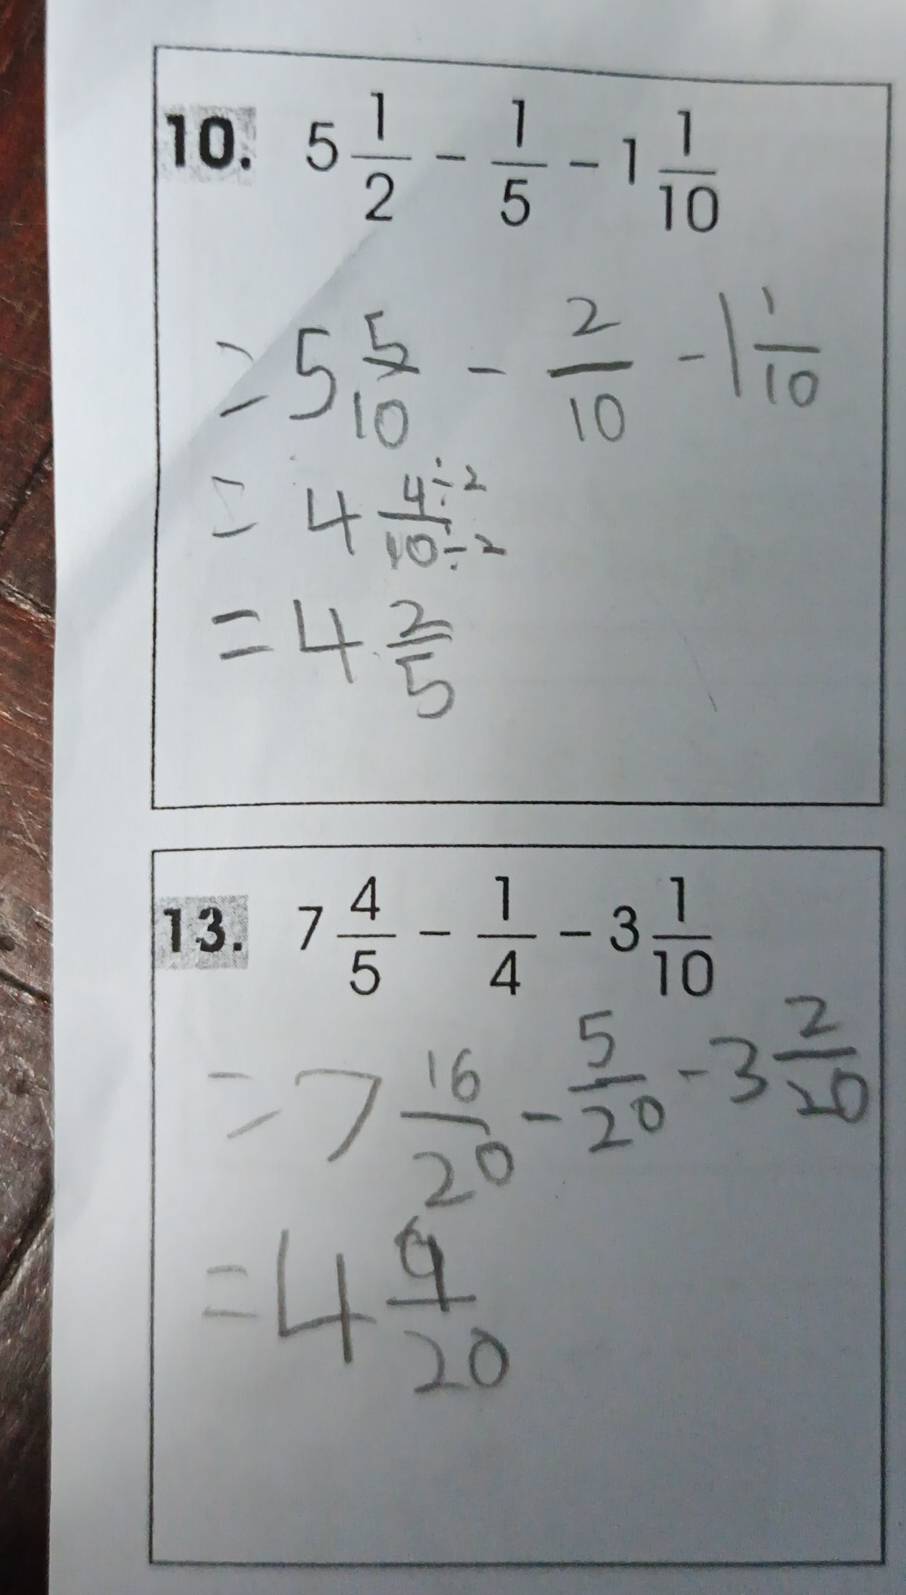 10. 5 1/2 - 1/5 - 1 1/10
= 5 5/10 - 2/10 - 1 1/10
= 4 4÷2/10÷2
= 4 2/5
13. 7 4/5 - 1/4 - 3 1/10
= 7 16/20 - 5/20 - 3 2/20
= 4 9/20